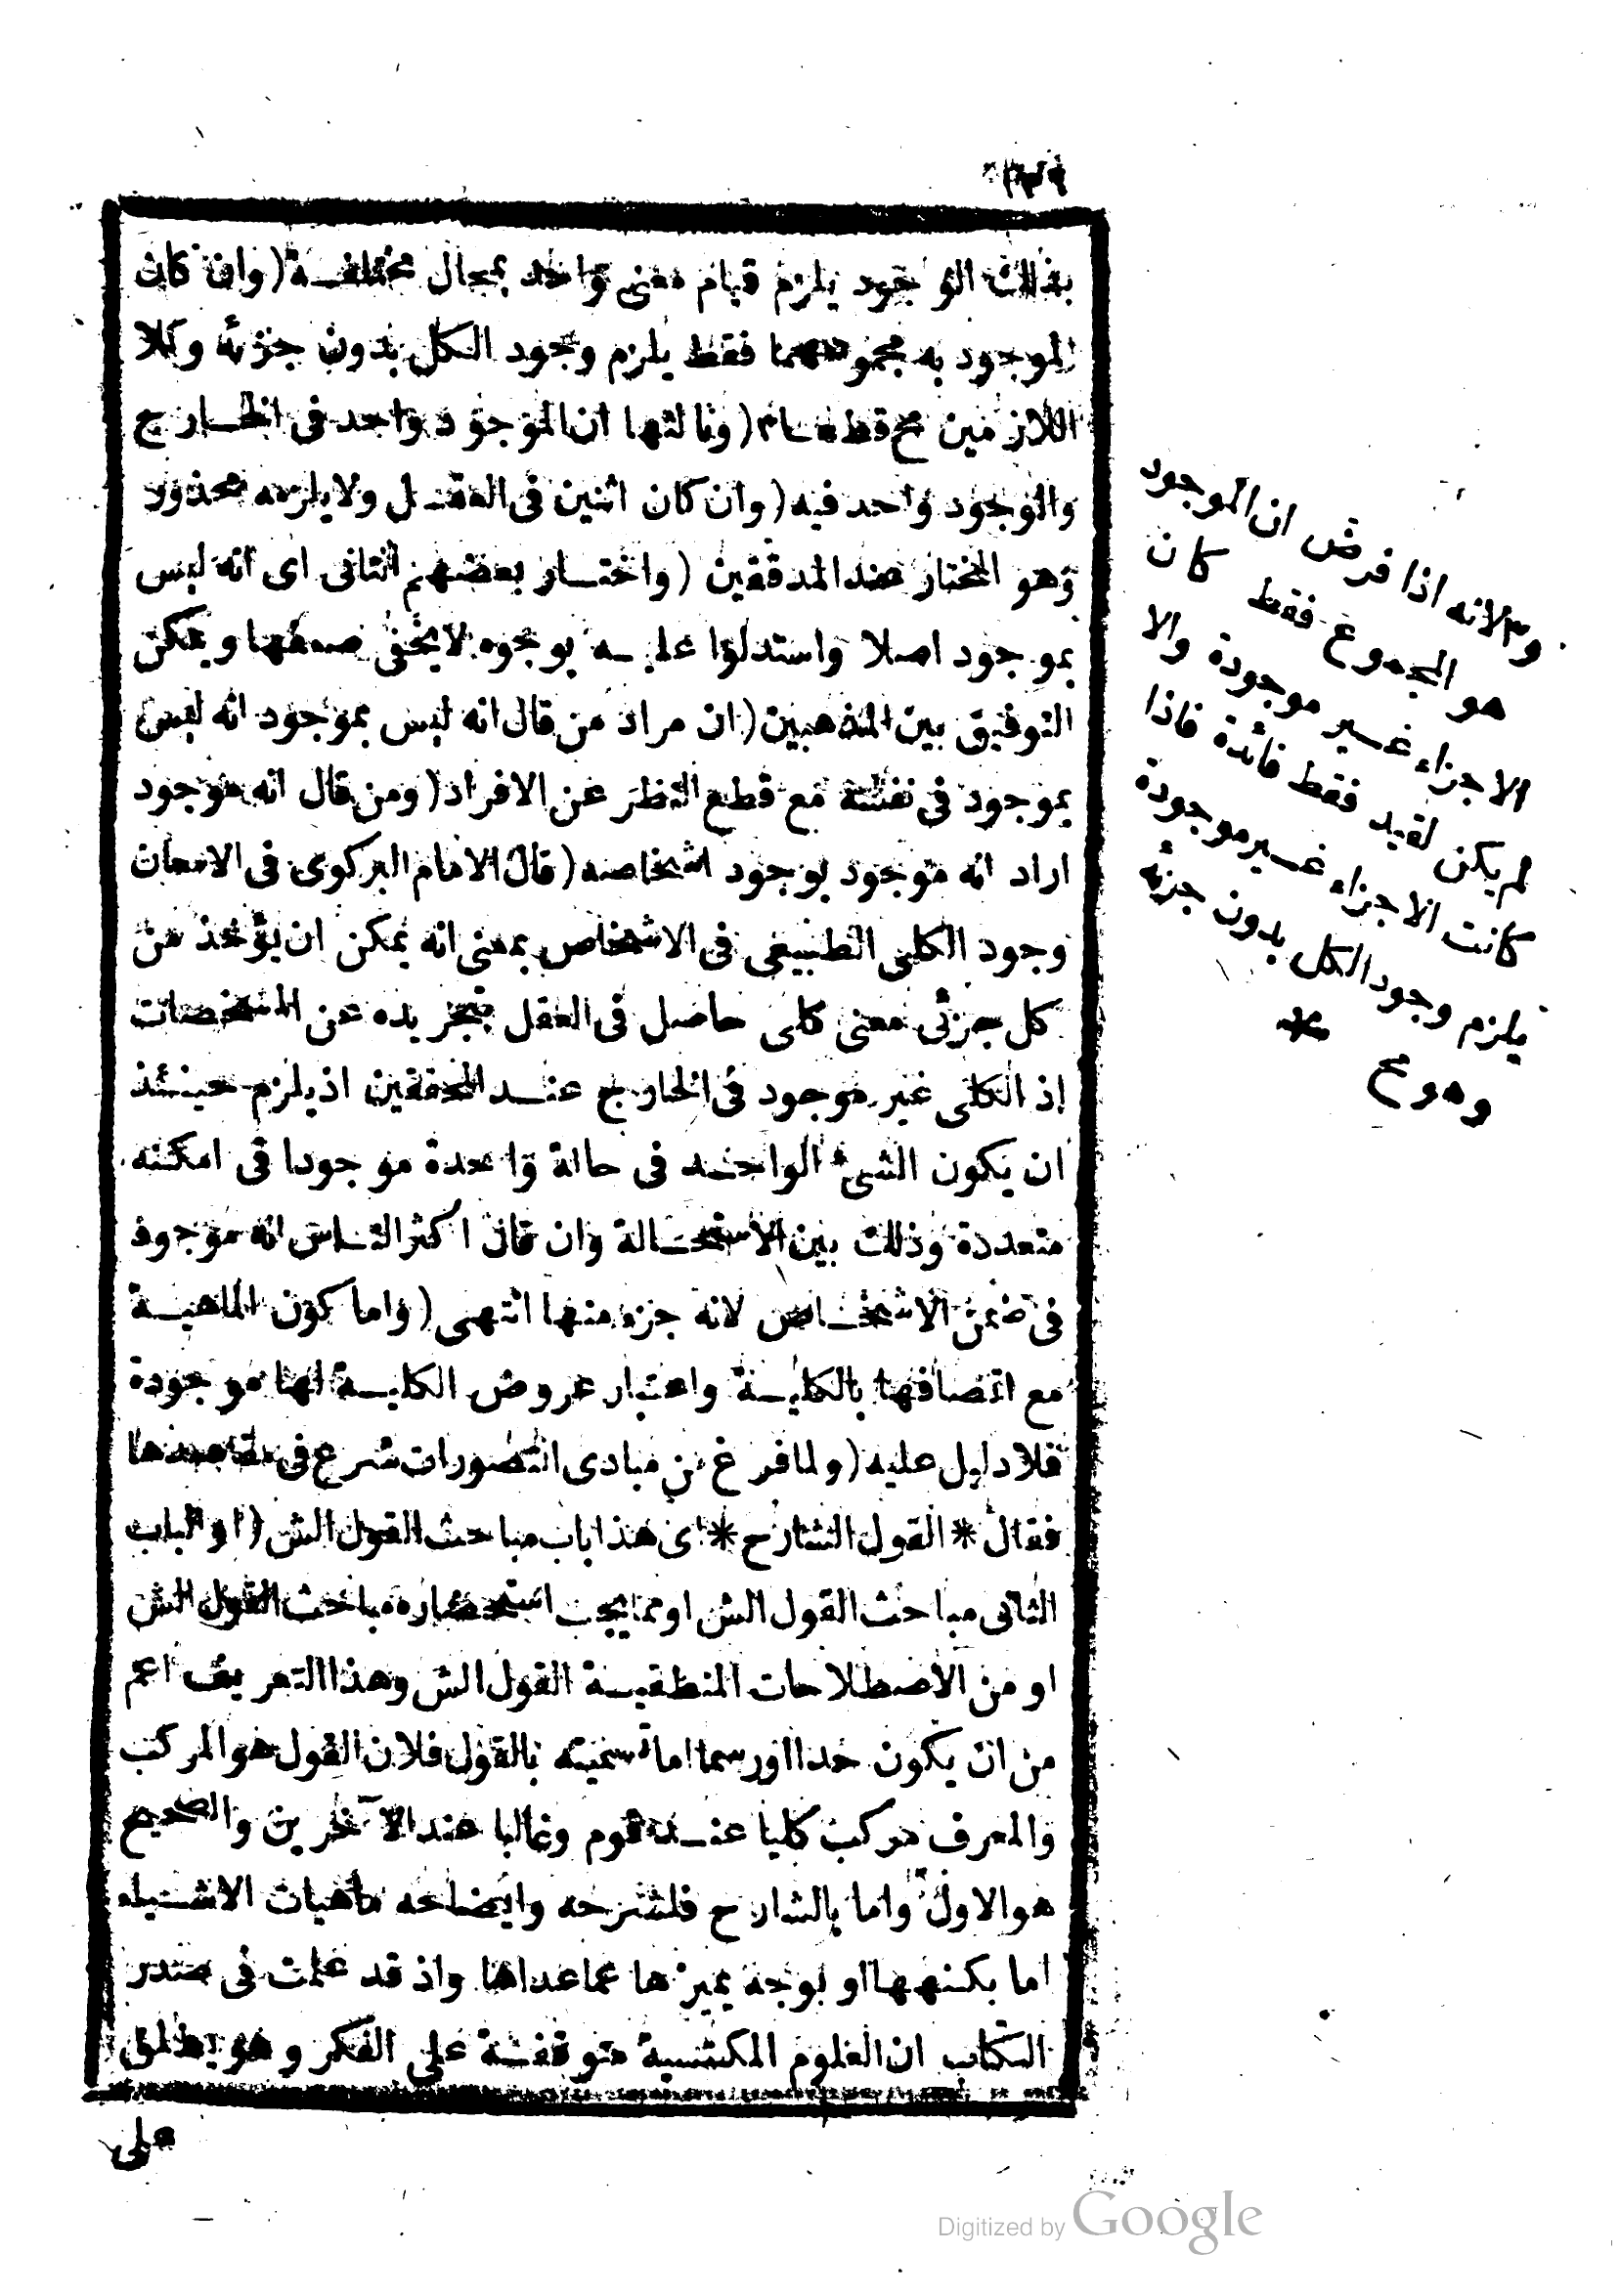 بذلك الوجود يلزم قيام معنى واحد بمحال مختلفة (وان كان
الموجود به مجموعهما فقط يلزم وجود الكل بدون جزئه وكلا
اللازمين مح قطعا م (وثالثها ان الموجود واحد فى الخارج
والوجود واحد فيه (وان كان اثنين فى العقل ولا يلزمه محذور
وهو المختار عند المدققين (واختار بعضهم الثانى اى انه ليس
بموجود اصلا واستدلوا عليه بوجوه لا يخفى ضعفها ويمكن
التوفيق بين المذهبين (ان مراد من قال انه ليس بموجود انه ليس
بموجود فى نفسه مع قطع النظر عن الافراد (ومن قال انه موجود
اراد انه موجود بوجود اشخاصه (قال الامام البركوى فى الامعان
وجود الكلى الطبيعى فى الاشخاص بمعنى انه يمكن ان يؤخذ من
كل جزئى معنى كلى حاصل فى العقل بتجريده عن المشخصات
إذ الكلى غير موجود فى الخارج عند المحققين اذ يلزم حينئذ
ان يكون الشئ الواحد فى حالة واحدة موجودا فى امكنه
متعددة وذلك بين الاستحالة وان قال اكثر الناس انه موجود
فى ضمن الاشخاص لانه جزء منها انتهى (واما كون الماهية
مع اتصافها بالكلية واعتبار عروض الكلية لها موجودة
فلا دليل عليه (ولما فرغ من مبادى التصورات شرع فى مقاصدها
فقال * القول الشارح * اى هذا باب مباحث القول الش (او الباب
الثانى مباحث القول الش او مما يجب استحضاره مباحث القول الش
او من الاصطلاحات المنطقية القول الش وهذا التعريف اعم
من ان يكون حدا او رسما اما تسميته بالقول فلان القول هو المركب
والمعرف مركب كليا عند قوم وغالبا عند الآخرين والصحيح
هو الاول واما بالشارح فلشرحه وايضاحه ماهيات الاشياء
اما بكنهها او بوجه يميزها عما عداها واذ قد علمت فى صدر
الكتاب ان العلوم المكتسبة متوقفة على الفكر وهو يطلق
على
م ولانه اذا فرض ان الموجود
هو المجموع فقط كان
الاجزاء غير موجودة والا
لم يكن لقيد فقط فائدة فاذا
كانت الاجزاء غير موجودة
يلزم وجود الكل بدون جزئه
وهو مح *
Digitized by Google